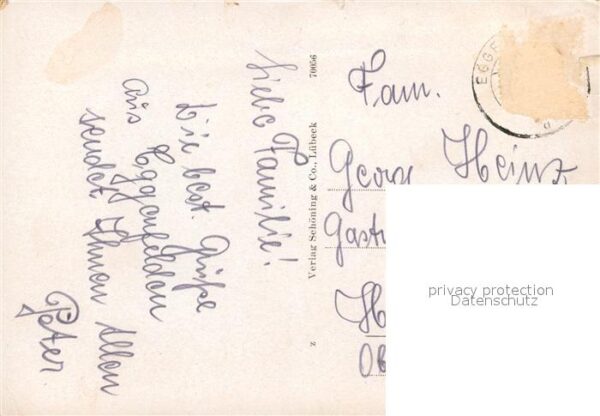 Liebe Familie!
Die best. Grüße
aus Eggenfelden
sendet Ihnen Allen
Peter
Verlag Schöning & Co., Lübeck
70056
z
EGGE
d
Fam.
Georg Heinz
privacy protection
Datenschutz